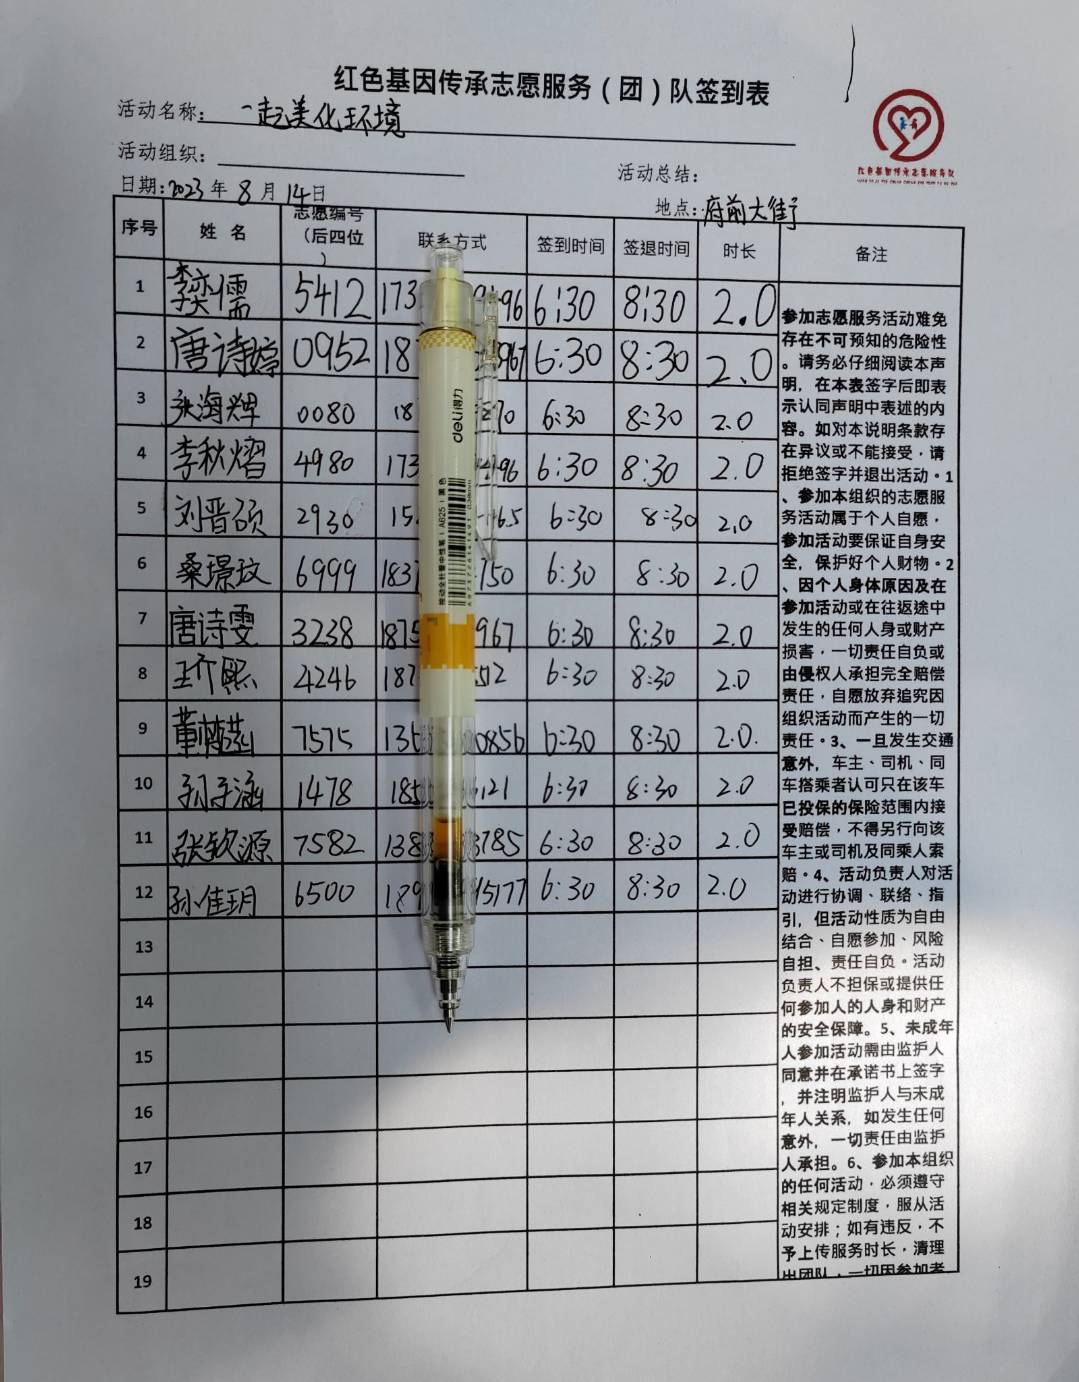 红色基因传承志愿服务（团）队签到表
活动名称：一起美化环境
活动组织：
活动总结：
日期：2023年8月14日
地点：府前大街
序号 姓名 志愿编号（后四位） 联系方式 签到时间 签退时间 时长 备注
1 李奕儒 5412 173 96 6:30 8:30 2.0
2 唐诗婷 0952 18 967 6:30 8:30 2.0
3 张海焯 0080 18 70 6:30 8:30 2.0
4 李秋熠 4980 173 96 6:30 8:30 2.0
5 刘晋硕 2930 15 465 6:30 8:30 2.0
6 桑璟玟 6999 183 750 6:30 8:30 2.0
7 唐诗雯 3238 1875 967 6:30 8:30 2.0
8 王乔熙 4246 187 512 6:30 8:30 2.0
9 董 7575 135 0856 6:30 8:30 2.0.
10 孙子涵 1478 185 6121 6:30 8:30 2.0
11 张钦源 7582 138 3785 6:30 8:30 2.0
12 孙佳玥 6500 189 45177 6:30 8:30 2.0
13
14
15
16
17
18
19
参加志愿服务活动难免
存在不可预知的危险性
。请务必仔细阅读本声
明，在本表签字后即表
示认同声明中表述的内
容。如对本说明条款存
在异议或不能接受，请
拒绝签字并退出活动。1
、参加本组织的志愿服
务活动属于个人自愿，
参加活动要保证自身安
全，保护好个人财物。2
、因个人身体原因及在
参加活动或在往返途中
发生的任何人身或财产
损害，一切责任自负或
由侵权人承担完全赔偿
责任，自愿放弃追究因
组织活动而产生的一切
责任。3、一旦发生交通
意外，车主、司机、同
车搭乘者认可只在该车
已投保的保险范围内接
受赔偿，不得另行向该
车主或司机及同乘人索
赔。4、活动负责人对活
动进行协调、联络、指
引，但活动性质为自由
结合、自愿参加、风险
自担、责任自负。活动
负责人不担保或提供任
何参加人的人身和财产
的安全保障。5、未成年
人参加活动需由监护人
同意并在承诺书上签字
，并注明监护人与未成
年人关系，如发生任何
意外，一切责任由监护
人承担。6、参加本组织
的任何活动，必须遵守
相关规定制度，服从活
动安排；如有违反，不
予上传服务时长，清理
出团队，一切因参加者
红色基因传承志愿服务队
deli得力
A625 黑色